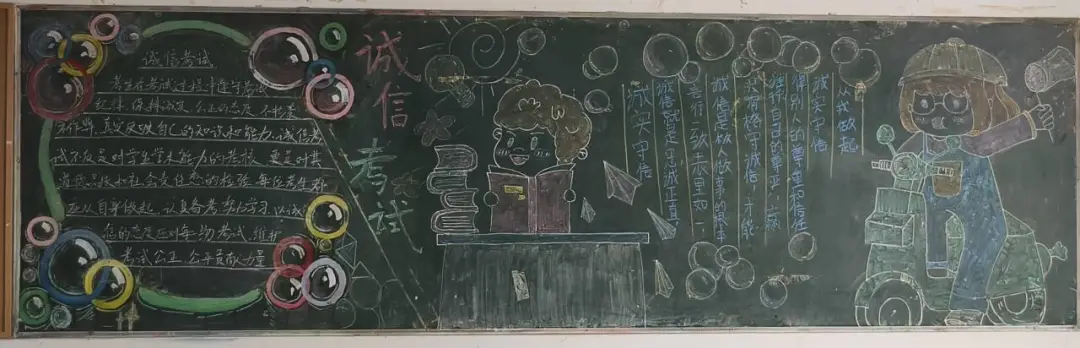 诚信考试
考生在考试过程中遵守考试
纪律,保持诚实、公正的态度,不抄袭
不作弊,真实反映自己的知识和能力,诚信考
试不仅是对学生学术能力的考核,更是对其
道德品质和社会责任感的检验,每位考生都
应从自身做起,认真备考,努力学习,以诚
信的态度应对每场考试,维护
考试公正、公平贡献力量
诚信考试
诚实守信
诚信就是忠诚正直,
言行一致表里如一,
诚信是做人做事的根本
只有恪守诚信,才能
自己的尊严,赢
得别人的尊重和信任
诚实守信
从我做起